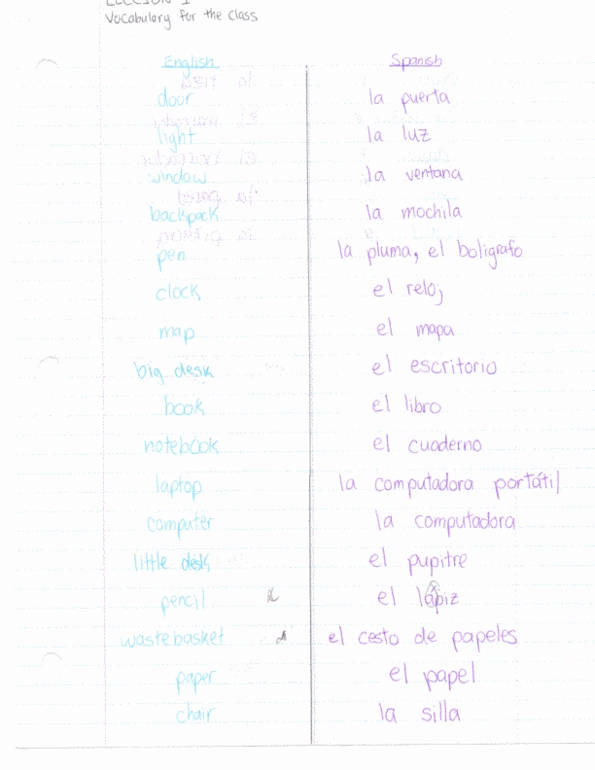 LECCION 1
Vocabulary for the class
English Spanish
door la puerta
light la luz
window la ventana
backpack la mochila
pen la pluma, el boligrafo
clock el reloj
map el mapa
big desk el escritorio
book el libro
notebook el cuaderno
laptop la computadora portátil
computer la computadora
little desk el pupitre
pencil el lápiz
wastebasket el cesto de papeles
paper el papel
chair la silla